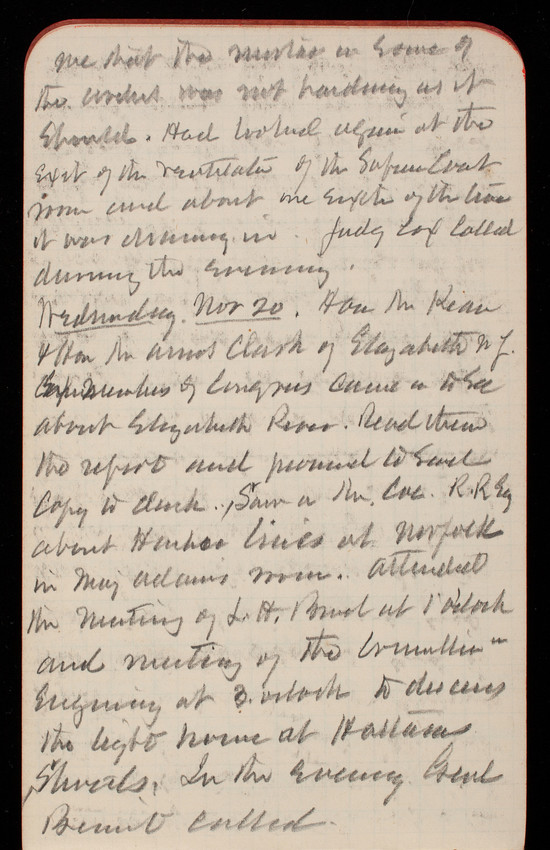 me that the mortar in some of
the arches was not hardening as it
should. Had looked again at the
exit of the ventilator of the Supreme Court
room and about one sixth of the time
it was drawing in. Judg Cox called
during the evening.
Wednesday Nov 20. Hon Mr Kean
& Hon Mr Amos Clark of Elizabeth N J.
Ex members of Congress came in to see
about Elizabeth River. Read them
the report and promised to send
Copy to Clark. Saw a Mr. Coe. R.R Eng
about Harbor lines at Norfolk
in Maj Adams room. Attended
the meeting of L. H. Board at 1 o'clock
and meeting of the Committee on
Engineering at 3 oclock to discuss
the light house at Hatteras
Shoals. In the evening Genl
Benet called.